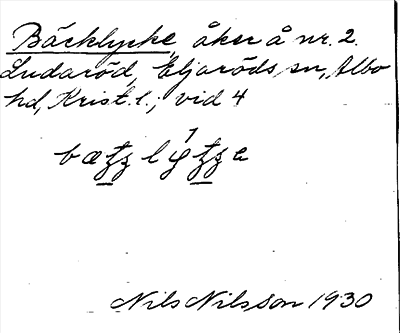 Bäcklycke, åker å nr. 2.
Ludaröd, Eljaröds sn, Albo
hd, Krist. l.; vid 4
Nils Nilsson 1930